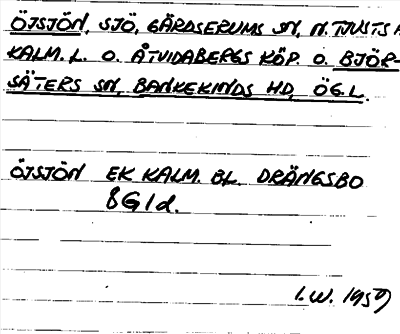 ÖJSJÖN, SJÖ, GÄRDSERUMS SN, N. TJUSTS H
KALM. L. O. ÅTVIDABERGS KÖP. O. BJÖR-
SÄTERS SN, BANKEKINDS HD, ÖG. L.
ÖJSJÖN EK KALM. BL. DRÄNGSBO
8G1d.
I.W. 1959